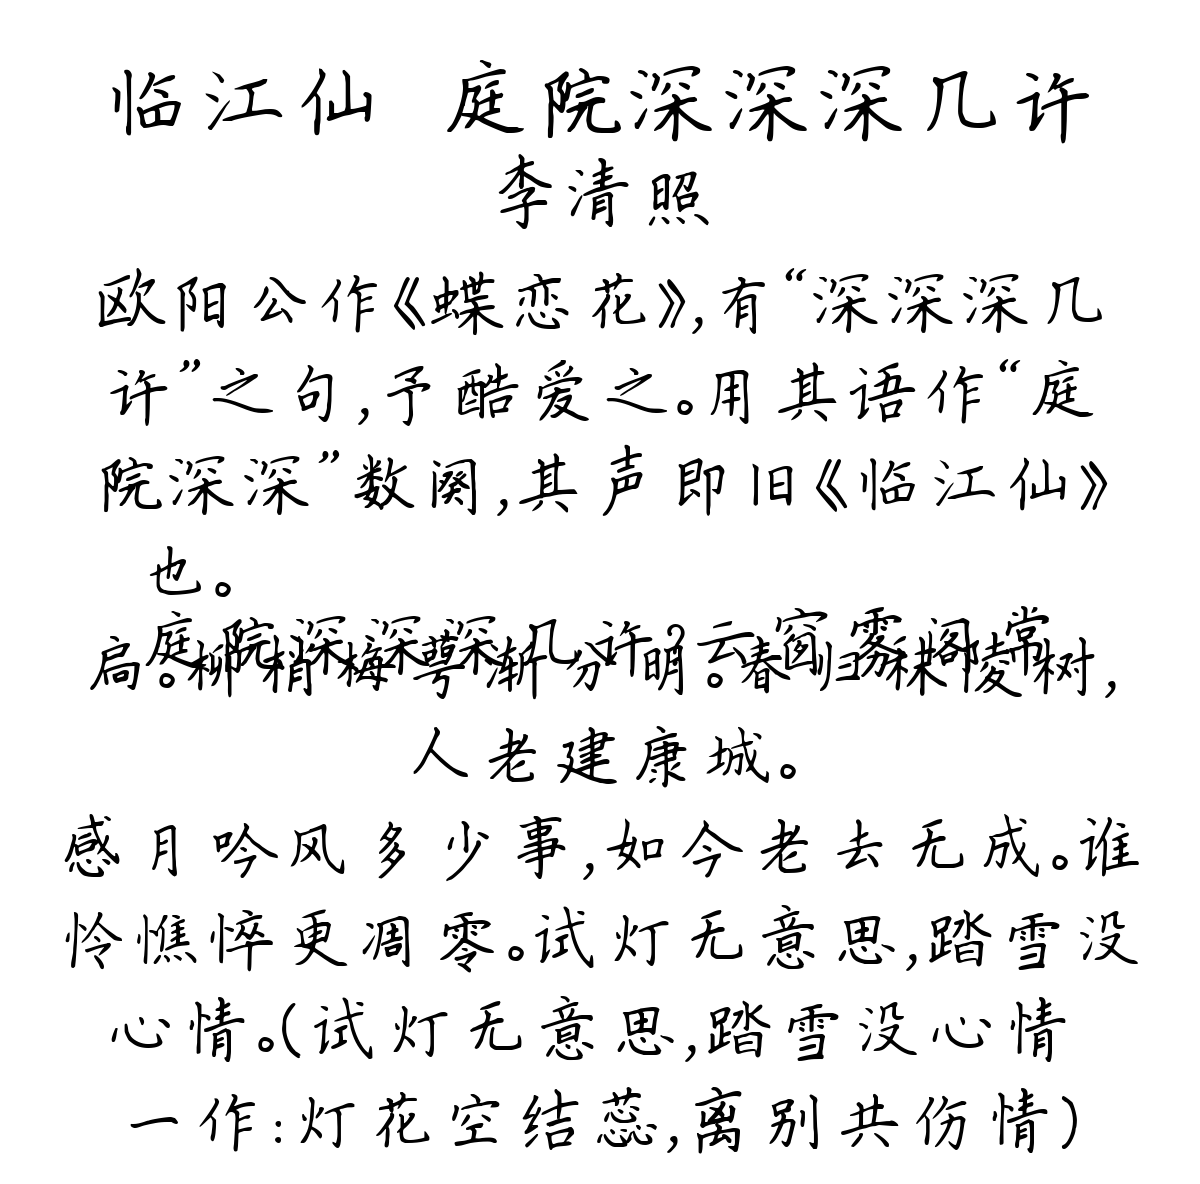 临江仙 庭院深深深几许
李清照
欧阳公作《蝶恋花》,有“深深深几
许”之句,予酷爱之。用其语作“庭
院深深”数阕,其声即旧《临江仙》
也。
庭院深深深几许?云窗雾阁常
扃。柳梢梅萼渐分明。春归秣陵树,
人老建康城。
感月吟风多少事,如今老去无成。谁
怜憔悴更凋零。试灯无意思,踏雪没
心情。(试灯无意思,踏雪没心情
一作:灯花空结蕊,离别共伤情)